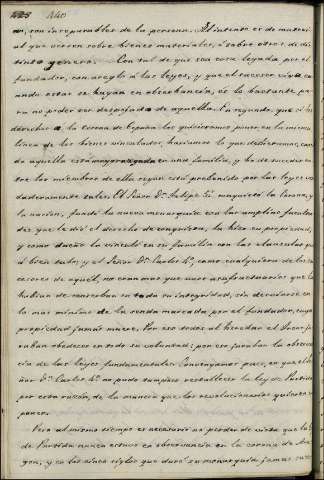 440
son inseparables de la persona. Al intento es de material
al que versen sobre bienes materiales, ó sobre otros de dis-
tinto género. Con tal de que sea cosa legada por el
fundador, con arreglo á las leyes, y que el sucesor viva cu-
ando estas se hayan en observancia, es lo bastante pa-
ra no poder ser despojado de aquella. En segundo, que si los
derechos á la corona de España los quisieramos poner en la misma
línea de los bienes vinculados, hariamos lo que debieramos, cuan-
do aquella está mayorazgada en una familia, y ha de suceder en-
tre los miembros de ella segun esté prefinido por las leyes ver-
daderamente tales. El Señor Dn. Felipe 5º conquistó la corona, y
la nacion, fundó la nueva monarquía con las amplias faculta-
des que le dió el derecho de conquista, la hizo su propiedad,
y como dueño la vinculó en su familia con las clausulas que
á bien tubo; y el Señor Dn. Carlos 4º, como cualquiera de los su-
cesores de aquel, no eran mas que unos usufructuarios que la
habian de conservar en toda su integridad, sin desviarse en
lo mas mínimo de la senda marcada por el fundador, cuya
propiedad jamás muere. Por eso todos al heredar el
raban obedecer en todo su voluntad; por eso juraban la observan-
cia de las leyes fundamentales. Convengamos pues, en que el Se-
ñor Dn. Carlos 4º no pudo tampoco restablecer la ley de Partida
por esta razon, de la manera que los revolucionarios quieren su-
poner.
Pero al mismo tiempo es necesario no perder de vista que la ley
de Partida nunca estuvo en observancia en la corona de Ara-
gon, y en los cinco siglos que duró su monarquía jamas